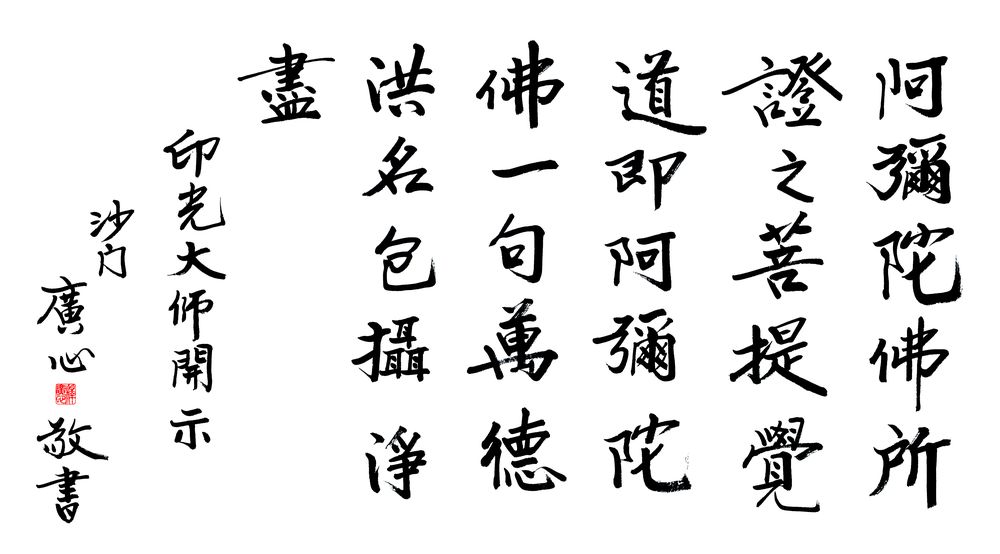 阿彌陀佛所
證之菩提覺
道即阿彌陀
佛一句萬德
洪名包攝淨
盡
印光大师開示
沙门
廣心
敬書